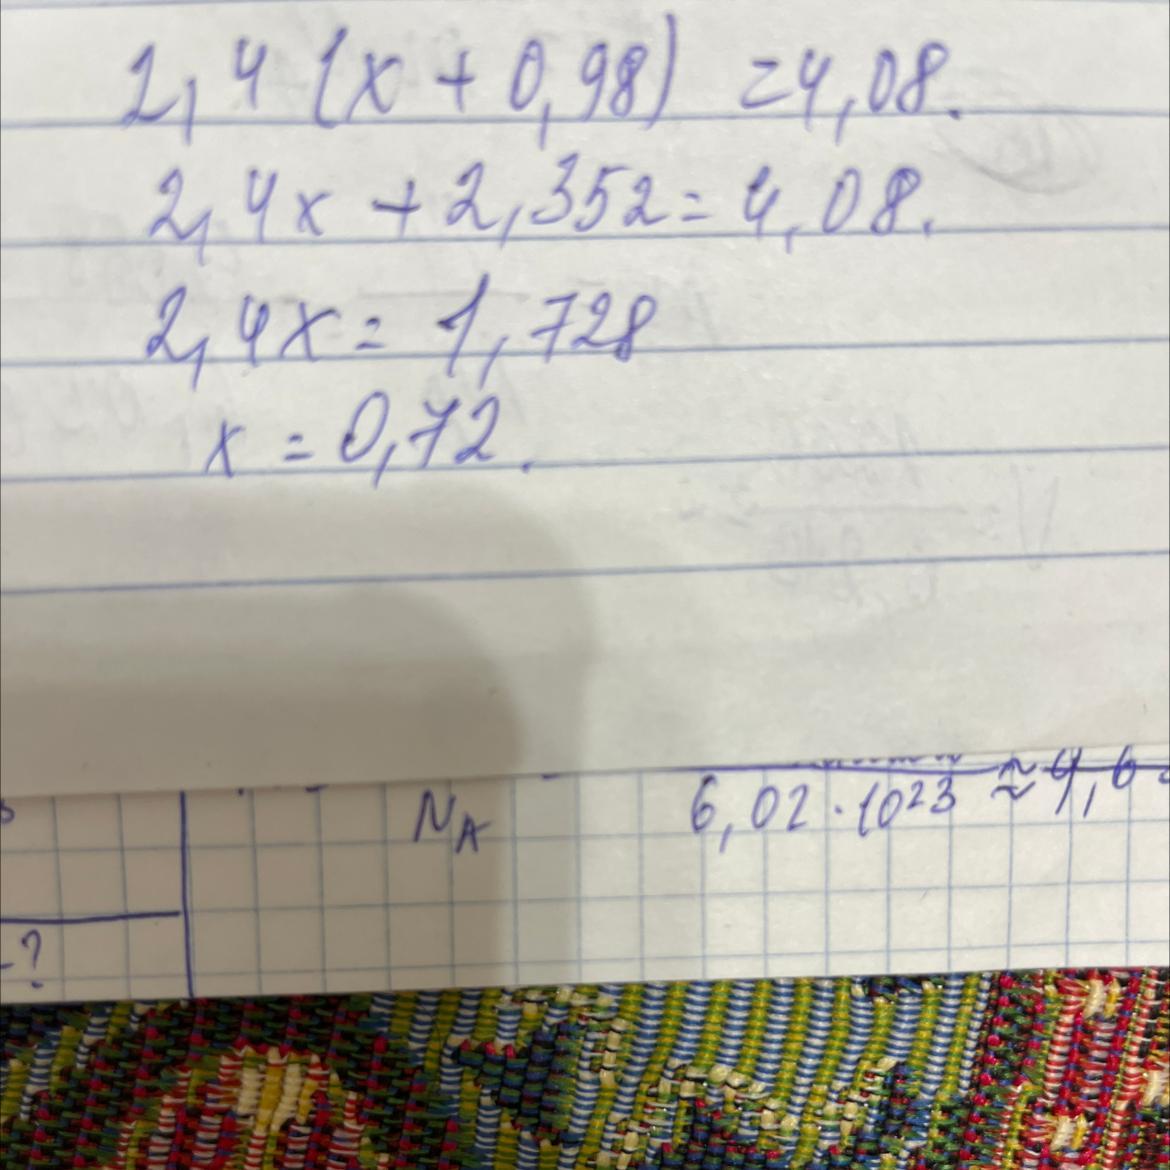 2,4 (x + 0,98) = 4,08.
2,4x + 2,352 = 4,08.
2,4x = 1,728
x = 0,72.
N_A 6,02 · 10²³ ≈ 4,6
-?